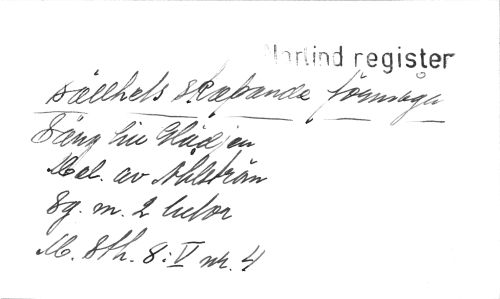 Norlind register
Sällhets skapande förmåga
Säng till Glädjen
Mel. av Ahlström
Sg. m. 2 lutor
M. Sth. 8: V nr. 4